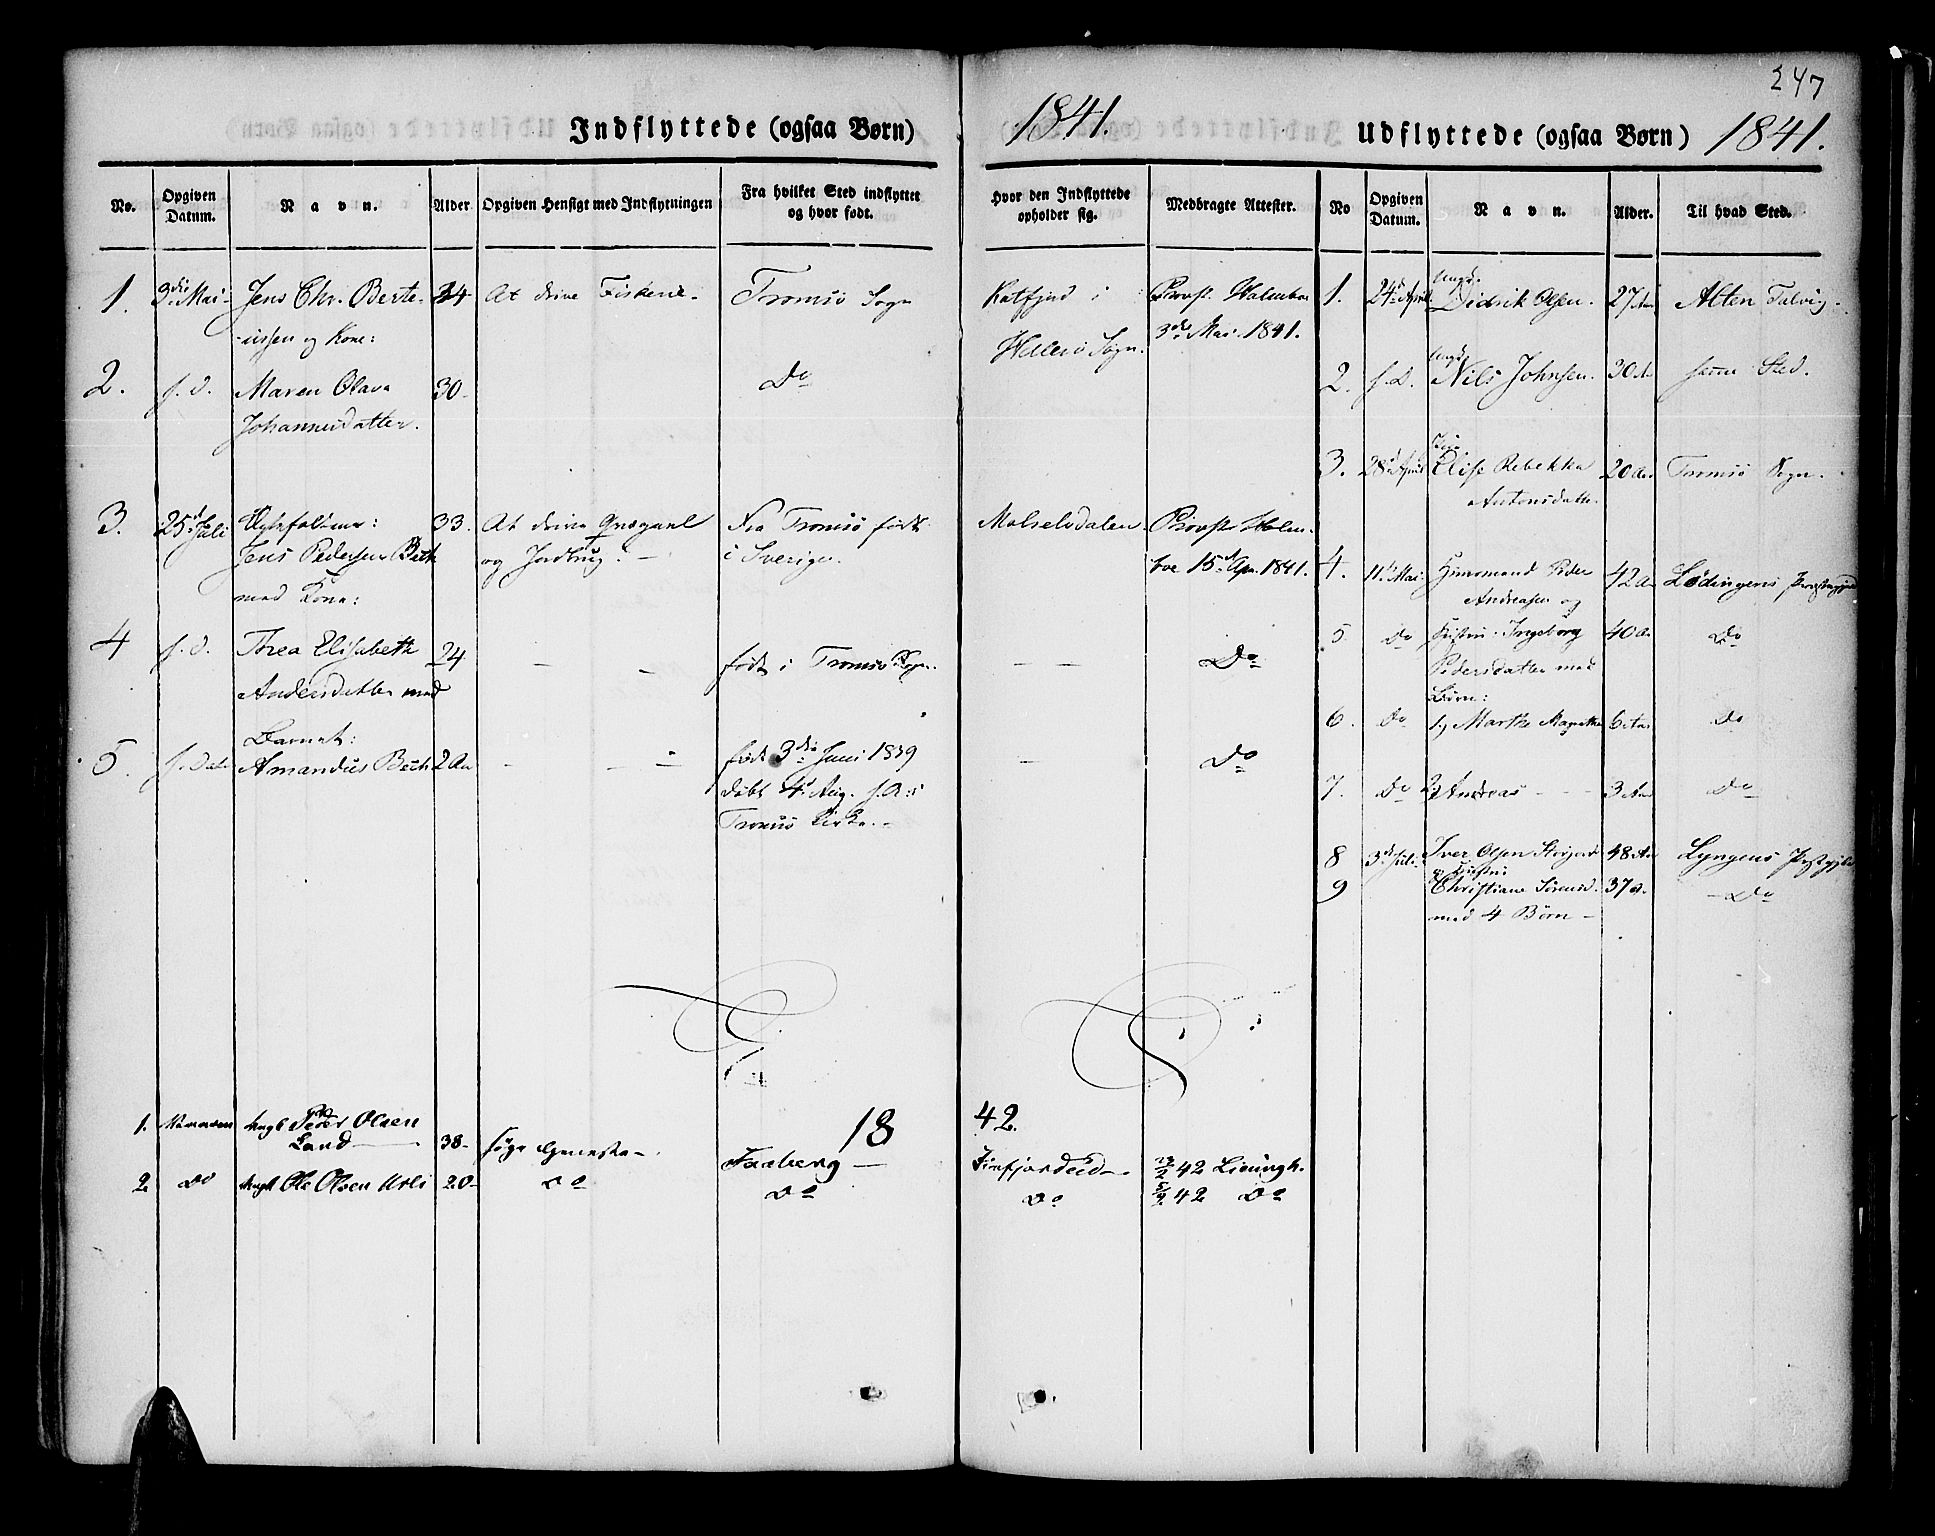 247
Indflyttede (ogsaa Børn)
1841.
Udflyttede (ogsaa Børn) 1841.
No.
Opgiven Datum.
Navn.
Alder
Opgiven Hensigt med Indflytningen
Fra hvilket Sted indflyttet og hvor født.
Hvor den Indflyttede opholder sig.
Medbragte Attester.
No
Opgiven Datum.
Navn.
Alder.
Til hvad Sted.
1. 3die Mai Jens Chr. Berte- 34 At drive Fiskerie Tromsö Sogn Katfjord i Provst Holmboe
-ussen og Kone: Hillesö Sogn. 3die Mai 1841.
2. s. D. Maren Olava 30 Do
Johannesdatter.
3. 25d Juli 33. At drive Qvægavl Fra Tromsö født Malselvdalen Provst Holm-
Jens Pedersen Bech og Jordbrug. i Sverige. boe 15d Apr. 1841.
med Kone:
4 s. d. Thea Elisabeth 24 født i Tromsö Sogn. Do
Andersdatter med
Barnet:
5. s. Dato Amandus Bech 2 Aar født 3die Juni 1839 Do
døbt 4d Aug. s. A. i
Tromsö Kirke.
1. 24d April Ungk. Didrik Olsen. 27 Aar Alten Talvig
2. s. D. Ungk. Nils Johnsen. 30 Aar samme Sted.
3. 28d April Pige Elise Rebekka 20 Aar Tromsö Sogn.
Antonsdatter.
4. 11t Mai Huusmand Peder 42 Aar Lødingens Præstegjeld
Andreasen og
5. Do Hustru Ingeborg 40 Aar Do
Pedersdatter med
Børn:
6. Do 1) Marthe Magrethe 6 Aar Do
7. Do 2) Andreas 3 Aar Do
8 3d Juli Iver Olsen 48 Aar Lyngens Præstegjeld
og Hustru
9 Christiane Sörensd. 37 A. Do
med 4 Börn
1842.
1. Ungk Peder Olsen
Land 38 søge Tjeneste Faaberg Finfjordeid 42
2. Do Ungk Ole Olsen 20 Do Do Do 42 Do